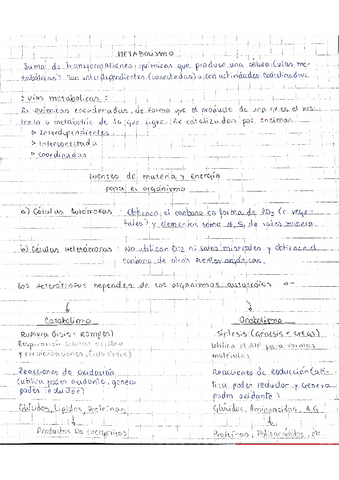 METABOLISMO
Suma de transformaciones químicas que produce una célula (vías me-
tabólicas). Son interdependientes (conectadas) con actividades coordinadas.
Vías metabólicas:
Rs químicas encadenadas, de forma que el producto de una es el
o metabolito de la que sigue. Rs catalizadas por enzimas.
> Interdependientes
> Interconectada
> coordinadas
Fuentes de materia y energía
para el organismo
a) Células Autótrofas: Obtienen el carbono en forma de CO2 (vege-
tales) y elementos como de sales
b) Células Heterótrofas: No utilizan CO2 ni sales minerales y obtienen el
carbono de otras fuentes orgánicas.
Los Heterótrofos dependen de los organismos autótrofos
Catabolismo
Anabolismo
Ruptura (lisis = Romper)
Síntesis (Génesis = crear)
Respiración celular
Utiliza el ATP para formar
y fermentaciones,
moléculas
Reacciones de oxidación
Reacciones de Reducción (uti-
(utiliza poder oxidante, genera
liza poder reductor y genera
poder reductor)
poder oxidante)
Glúcidos, Lípidos, Proteínas
Glúcidos, Aminoácidos, A.G
Productos No
Proteínas, Polisacáridos, etc